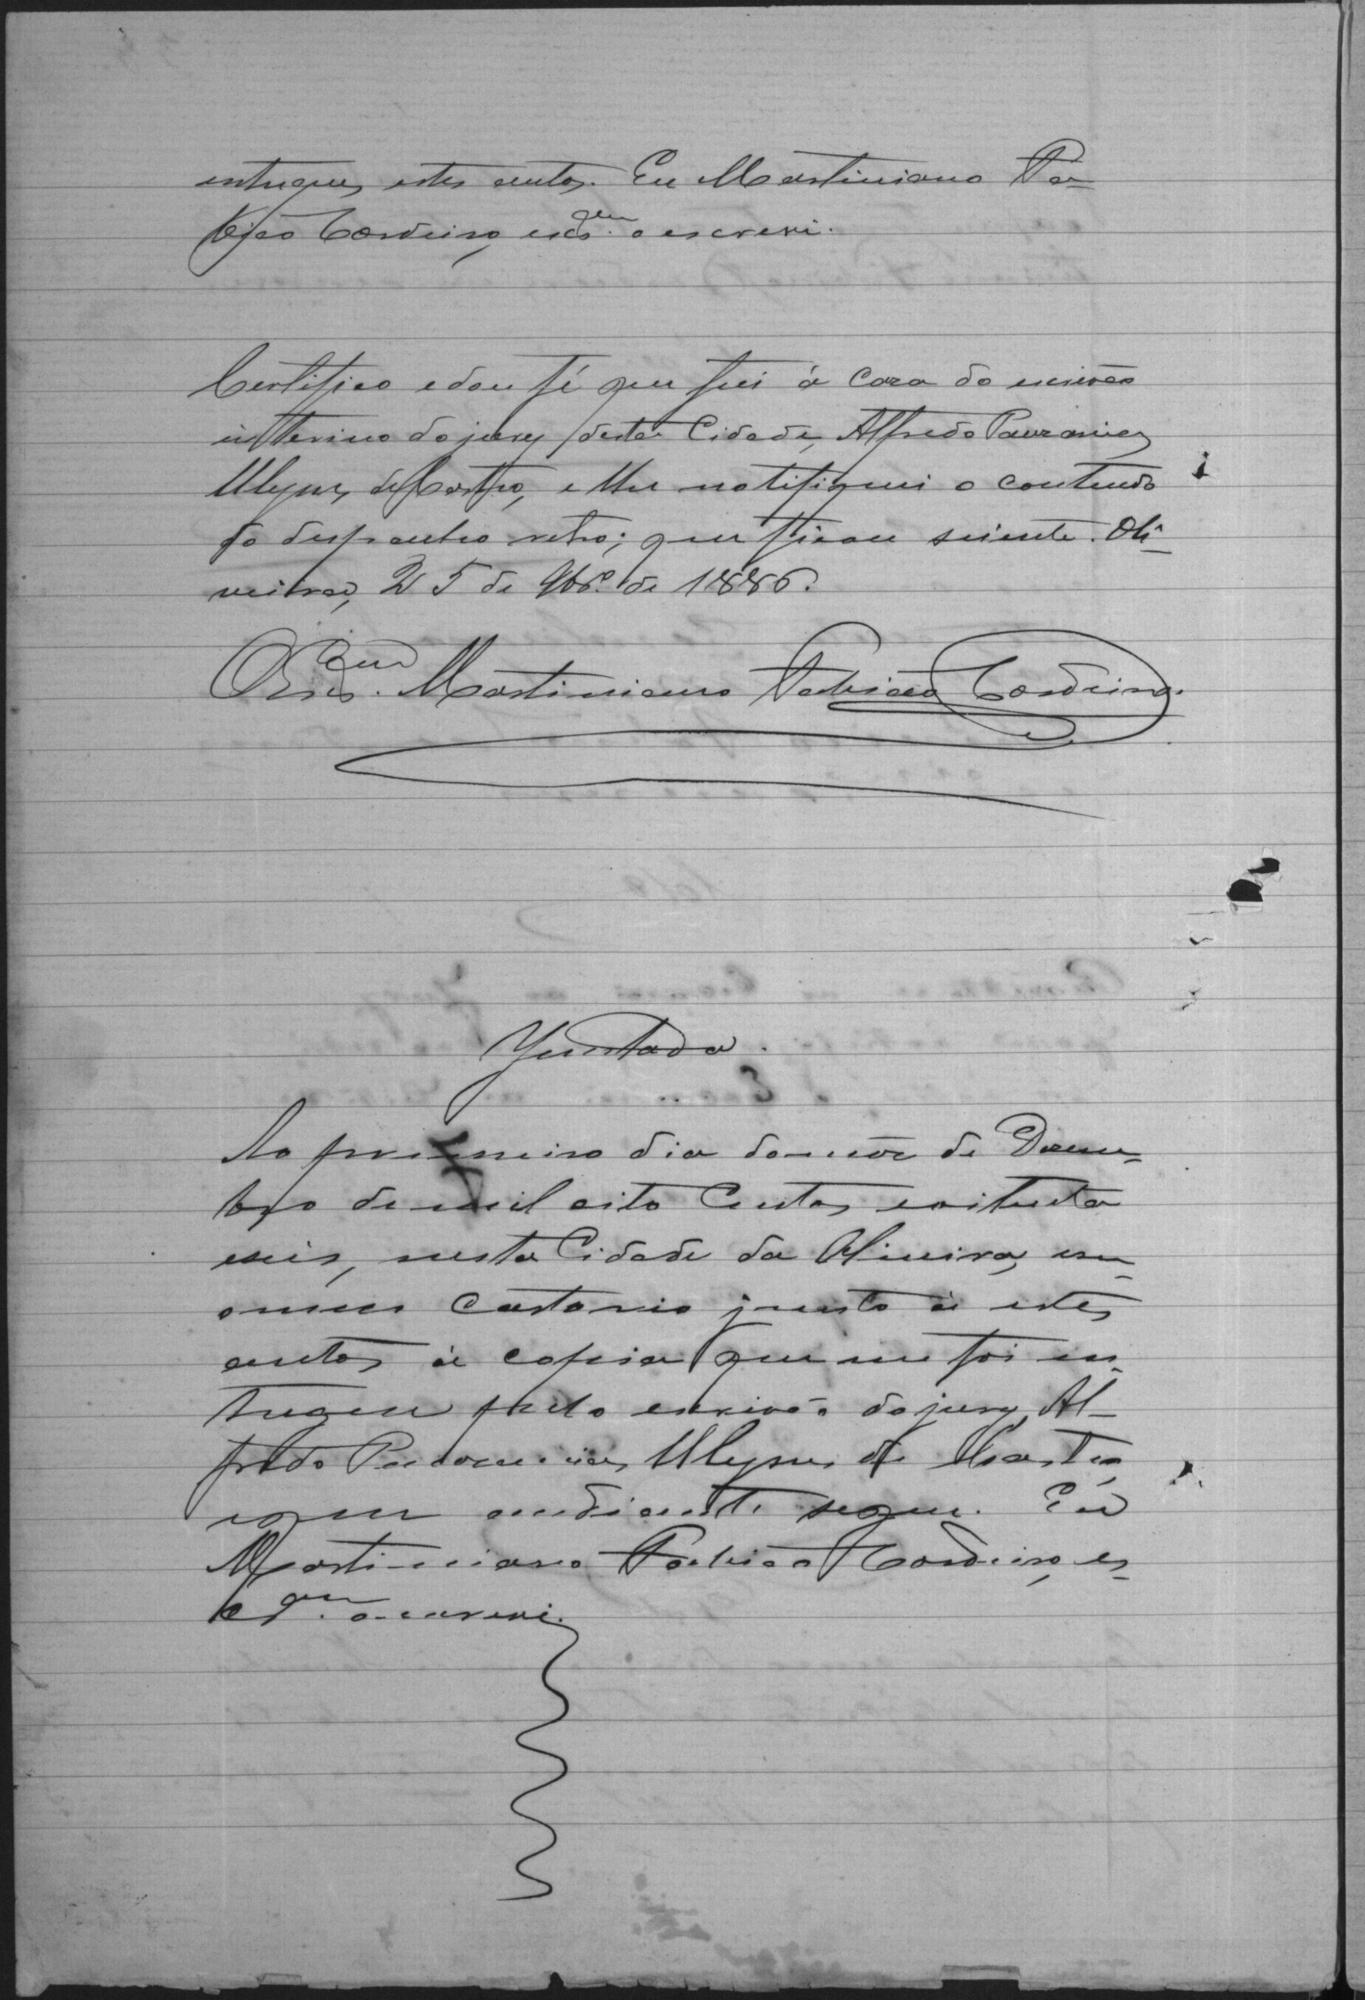 entregues estes autos. Eu Martiniano Pa-
tricio Cordeiro, escr.am o escrevi.
Certifico e dou fé que fui á casa do escrivão
interino do jury desta Cidade, Alfredo
Ulysses de Castro, e lhe notifiquei o conteudo
do despacho retro; que ficou sciente. Oli-
veira, 25 de 9br.o de 1886.
O Martiniano Cordeiro.
Juntada.
Ao primeiro dia do mês de Dezem-
bro de mil oito centos e oitenta
e seis, nesta Cidade da Oliveira, em
o meu Cartorio junto á estes
autos a copia que me foi en-
tregue pelo escrivão do jury, Al-
fredo Ulysses de Castro,
e que em diante segue. Eu
Martiniano Cordeiro, es-
o escrevi.